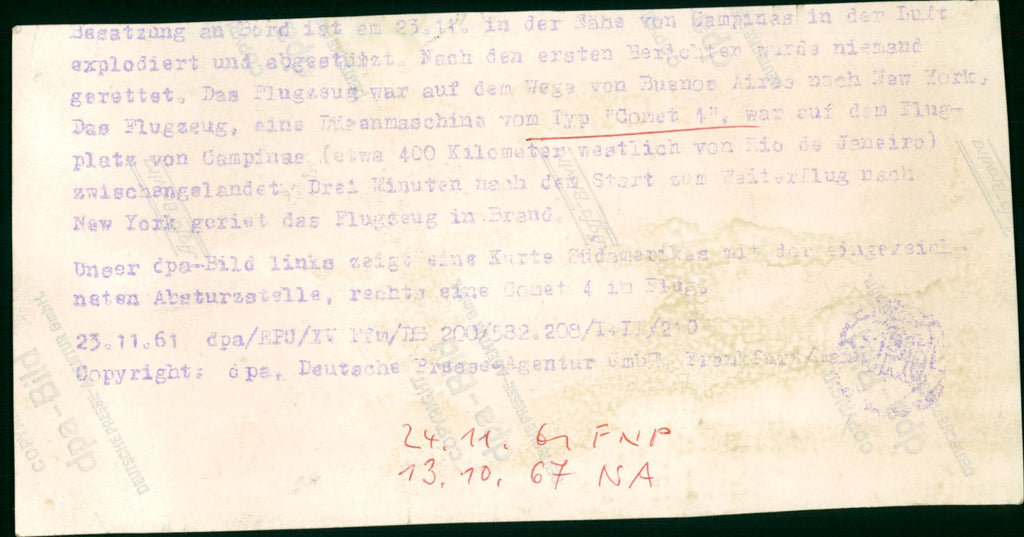 Besatzung an Bord ist am 23.11. in der Nähe von Campinas in der Luft
explodiert und abgestürzt. Nach den ersten Berichten wurde niemand
gerettet. Das Flugzeug war auf dem Wege von Buenos Aires nach New York.
Das Flugzeug, eine Düsenmaschine vom Typ "Comet 4", war auf dem Flug-
platz von Campinas (etwa 400 Kilometer westlich von Rio de Janeiro)
zwischengelandet. Drei Minuten nach dem Start zum Weiterflug nach
New York geriet das Flugzeug in Brand.
Unser dpa-Bild links zeigt eine Karte Südamerikas mit der eingezeich-
neten Absturzstelle, rechts eine Comet 4 im Flug.
23.11.61 dpa/EPU/XV Ffm/HS 200/582.208/I+II/210
Copyright: dpa, Deutsche Presse-Agentur GmbH, Frankfurt/Main
24.11.61 FNP
13.10.67 NA
COPYRIGHT
dpa-Bild
DEUTSCHE PRESSE-AGENTUR GMBH.